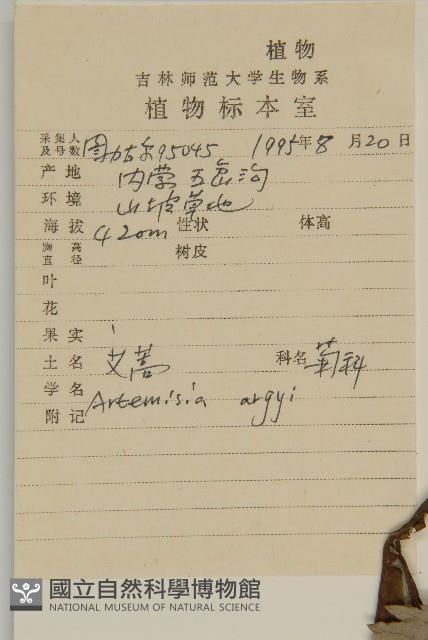 植物
吉林师范大学生物系
植物标本室
采集人及号数 95045 1995年8月20日
产地 内蒙 五岔沟
环境 山坡草地
海拔 420m 性状 体高
胸高直径 树皮
叶
花
果实
土名 艾蒿 科名 菊科
学名 Artemisia argyi
附记
國立自然科學博物館
NATIONAL MUSEUM OF NATURAL SCIENCE